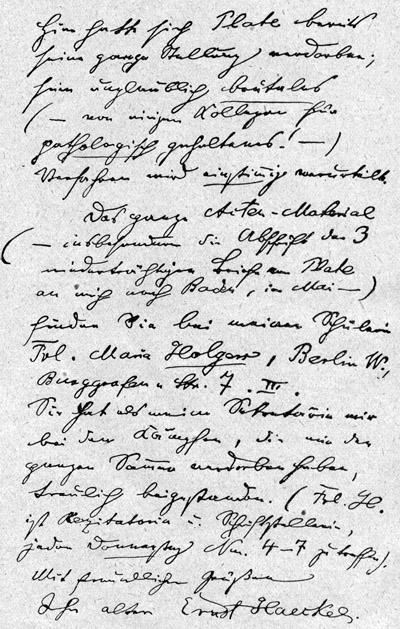 Hier hatte sich Plate bereits
seine ganze Stellung verdorben;
sein unglaublich brutales
(– von einigen Kollegen für
pathologisch gehaltenes! –)
Verfahren wird einstimmig verurteilt.
Das ganze Akten-Material
(– insbesondere die Abschrift der 3
niederträchtigen Briefe von Plate
an mich nach Baden, im Mai –)
finden Sie bei meiner Schülerin
Frl. Maria Holgers, Berlin W.,
Burggrafen Str. 7. III.
Sie hat als meine Sekretärin mir
bei den Kämpfen, die mir den
ganzen Sommer verdorben haben,
treulich beigestanden. (Frl. H.
ist Rezitatorin u. Schriftstellerin,
jeden Donnerstag Nm. 4–7 zu treffen).
Mit freundlichen Grüßen
Ihr alter Ernst Haeckel.